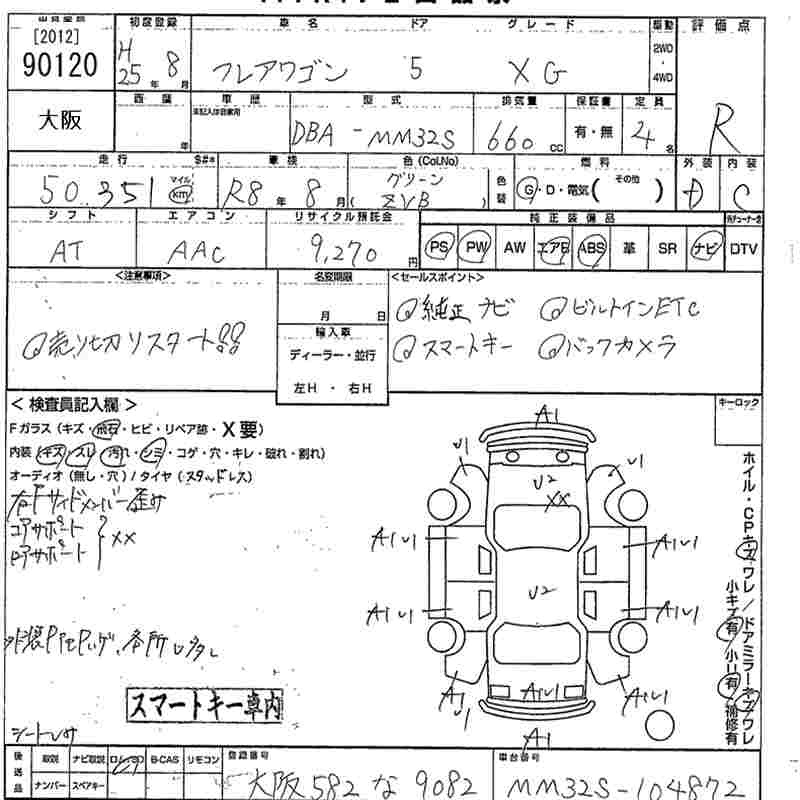 [2012]
90120
大阪
初度登録 車名 ドア グレード 駆動 評価点
H25年 8月 フレアワゴン 5 XG 2WD・4WD R
車歴 型式 排気量 保証書 定員
年 DBA-MM32S 660cc 有・無 4名
走行 車検 色(ColNo) 燃料 外装 内装
50351 マイル km R8年 8月 グリーン ZVB 色替 G・D・電気(その他) D C
シフト エアコン リサイクル預託金 純正装備品
AT AAC 9,270円 PS PW AW エアB ABS 革 SR ナビ DTV
<注意事項> 名変期限 <セールスポイント>
月 日 純正ナビ ビルトインETC
売り切りスタート!! 輸入車 スマートキー バックカメラ
ディーラー・並行
左H・右H
<検査員記入欄> キーロック
Fガラス(キズ・飛石・ヒビ・リペア跡・X要)
内装(キズ・スレ・汚れ・シミ・コゲ・穴・キレ・破れ・割れ)
オーディオ(無し・穴)/タイヤ(スタッドレス)
右Fサイドメンバー歪み
コアサポート
ロアサポート XX
各所
シート
スマートキー車内
A1
U1 U1
U2
XX
A1U1 A1U1
U2
A1U1 A1U1
A1 U1 A1U1 A1U1
A1
ホイル・CPキズワレ/ドアミラーキズワレ
小キズ有 小U有 補修有
後送品 取説 ナビ取説 B-CAS リモコン 登録番号 車台番号
ナンバー スペアキー 大阪 582 な 9082 MM32S-104872